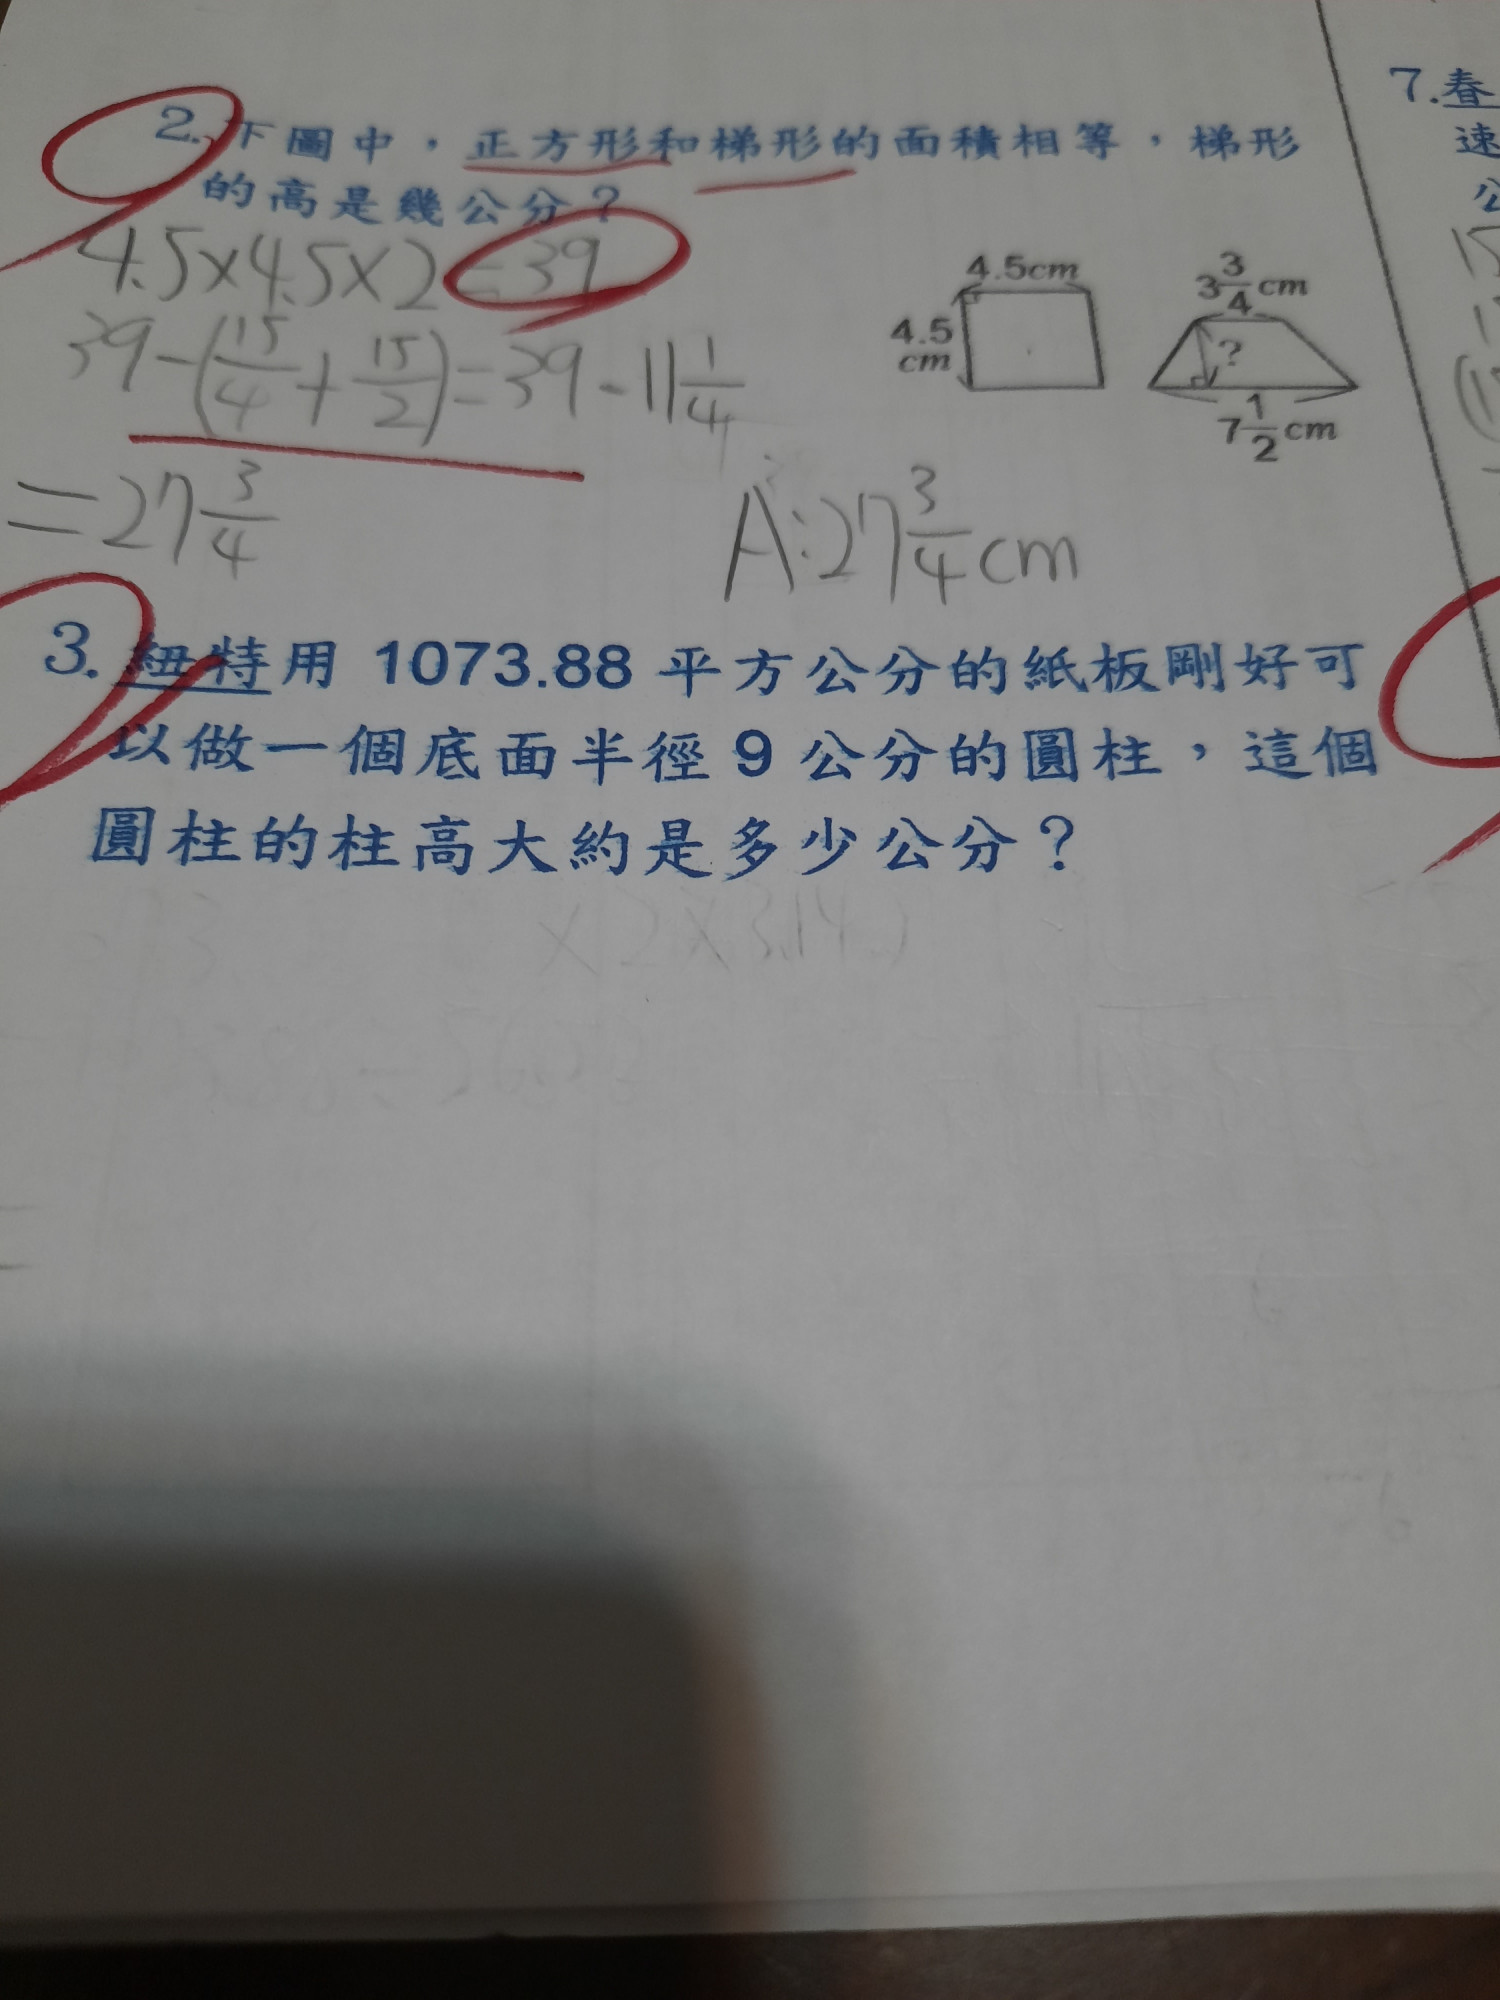 2.下圖中，正方形和梯形的面積相等，梯形
的高是幾公分？
4.5×4.5×2=39
39-(15/4+15/2)=39-11 1/4
=27 3/4
4.5cm
4.5
cm
3 3/4 cm
?
7 1/2 cm
A:27 3/4 cm
3.紐特用 1073.88 平方公分的紙板剛好可
以做一個底面半徑 9 公分的圓柱，這個
圓柱的柱高大約是多少公分？
×2×3.14)
7.春
速